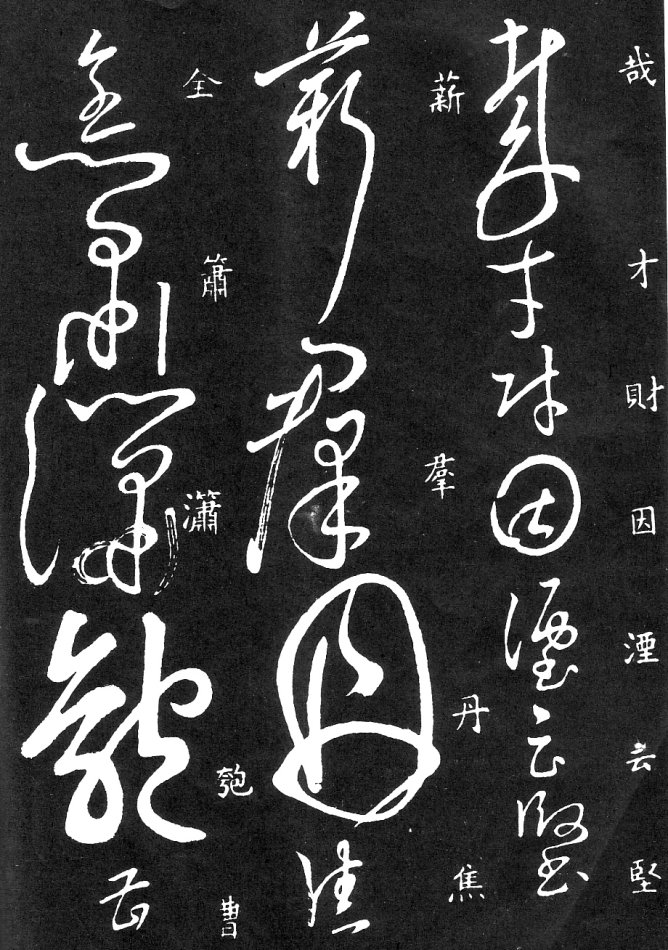 哉才財因湮云堅
薪羣丹焦
全簫瀟匏曹